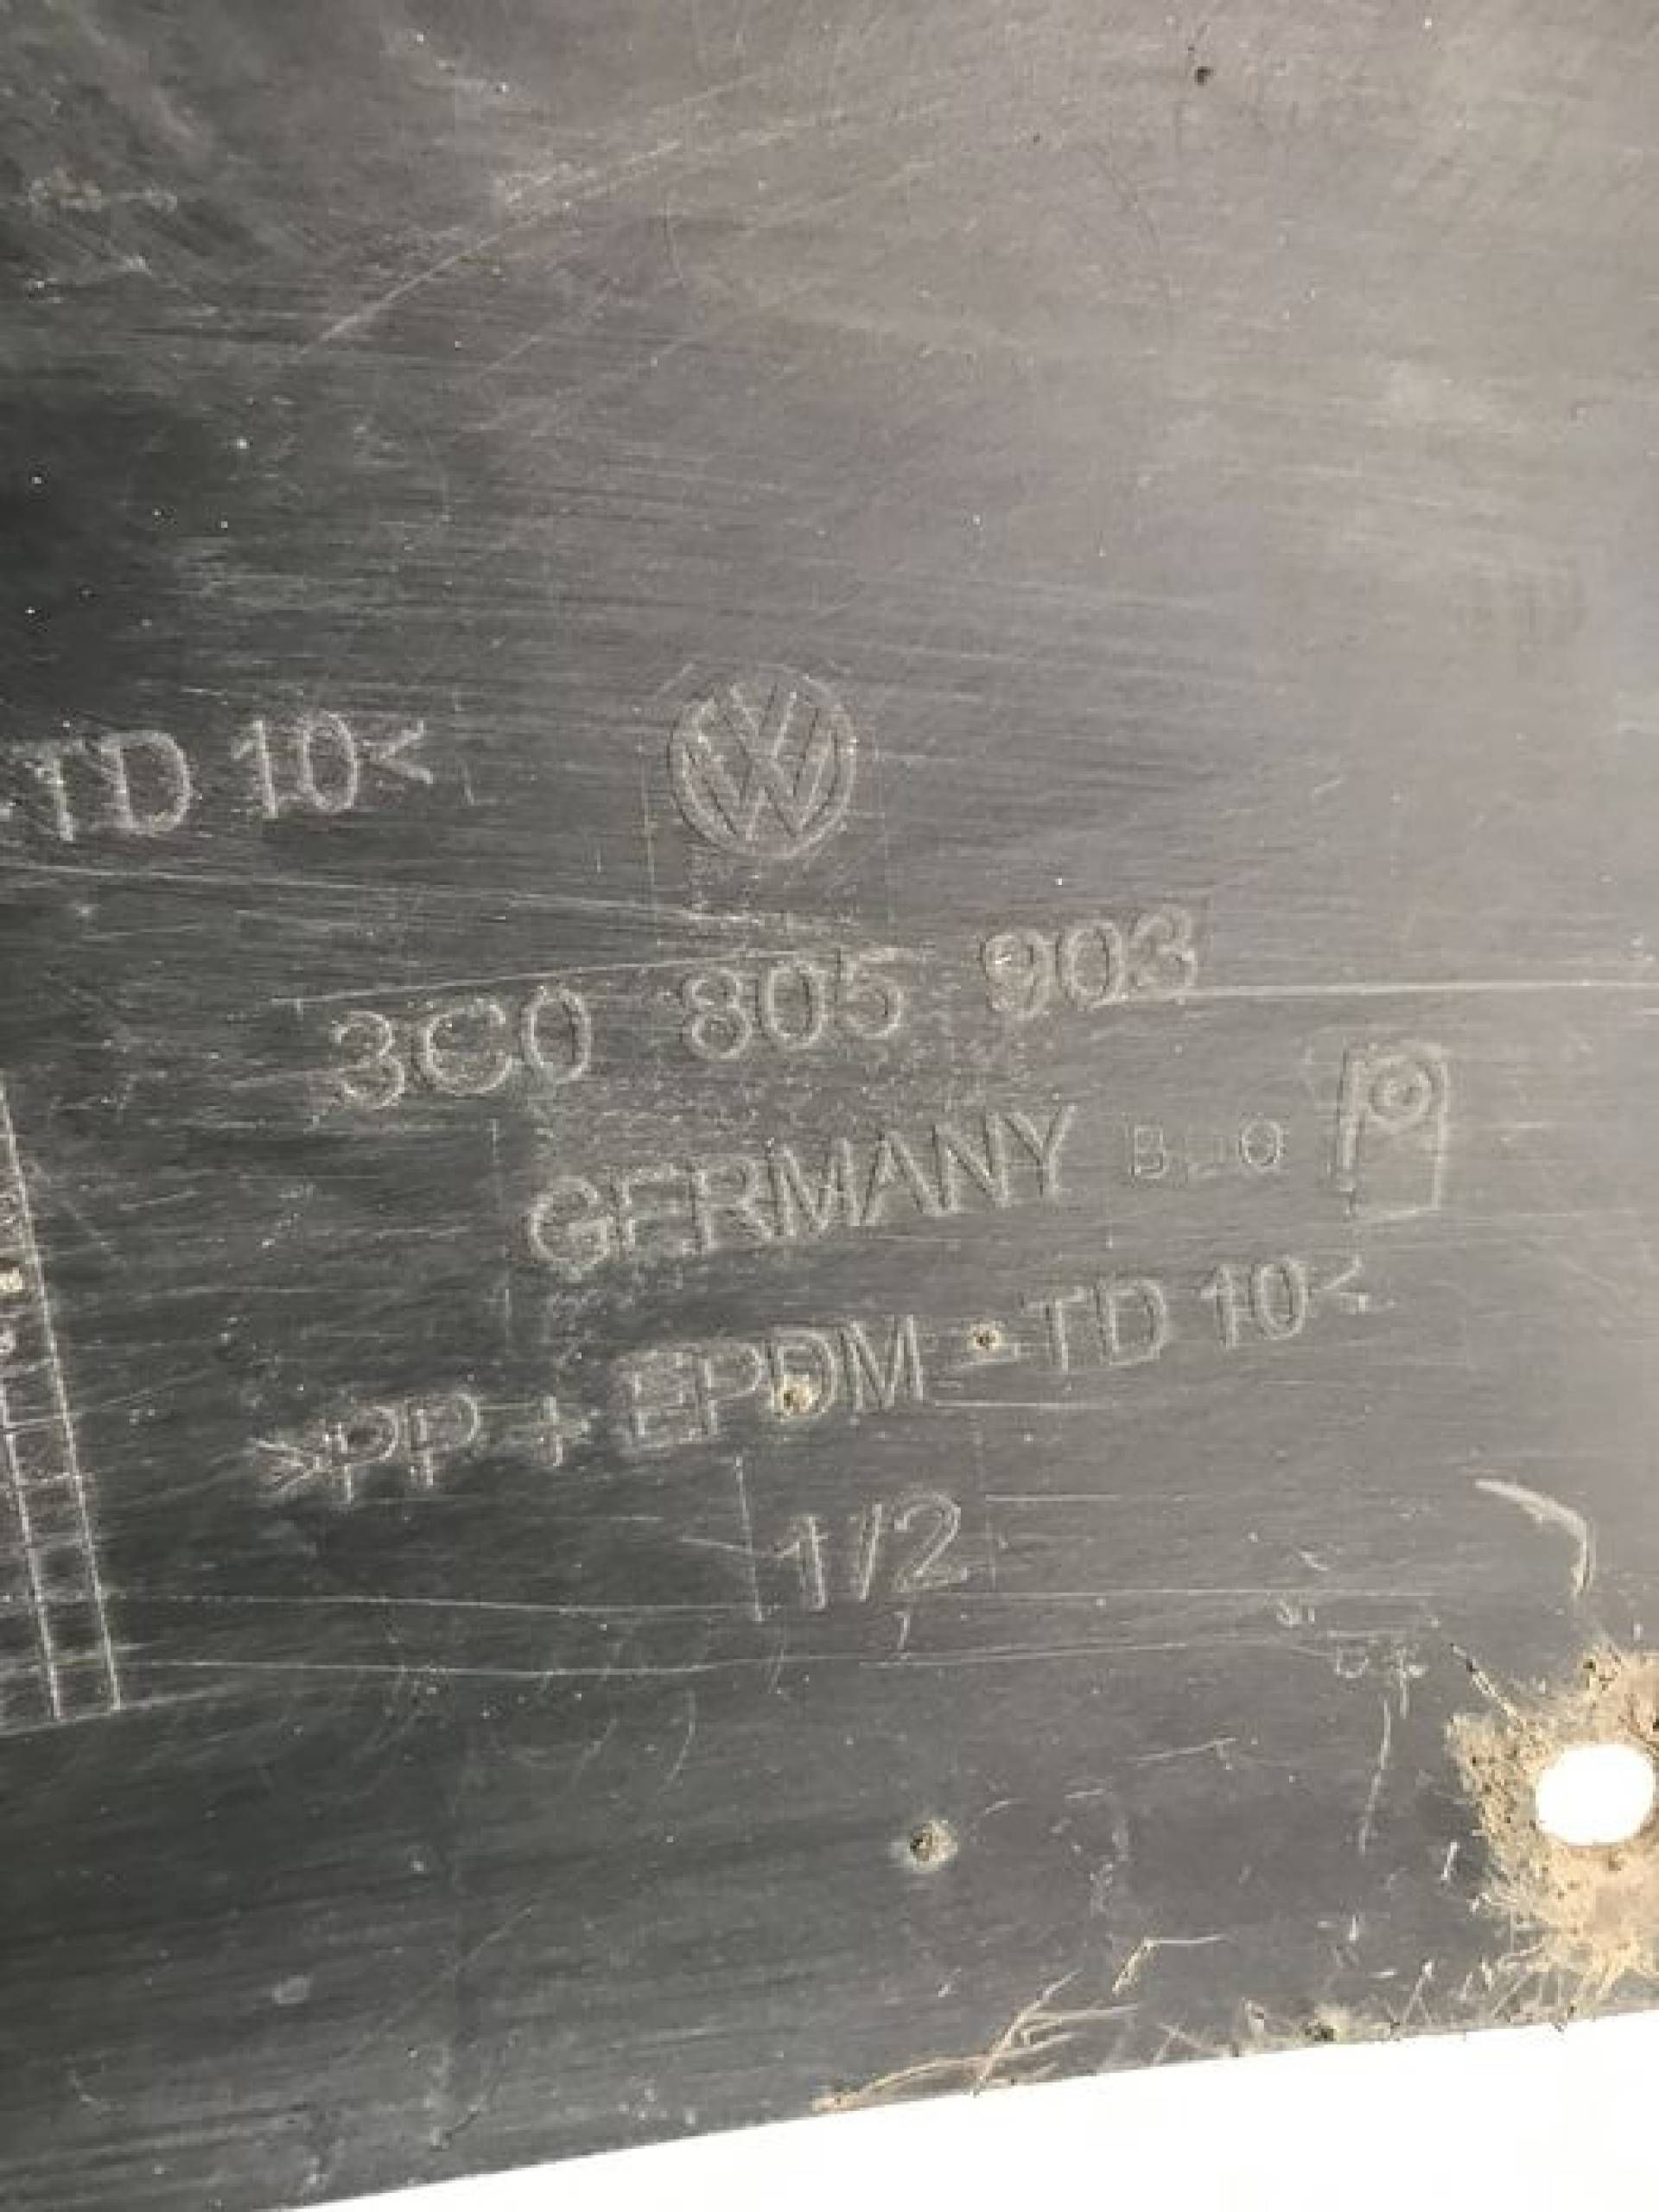 -TD 10<
3C0 805 903
GERMANY
>PP + EPDM - TD 10<
1/2